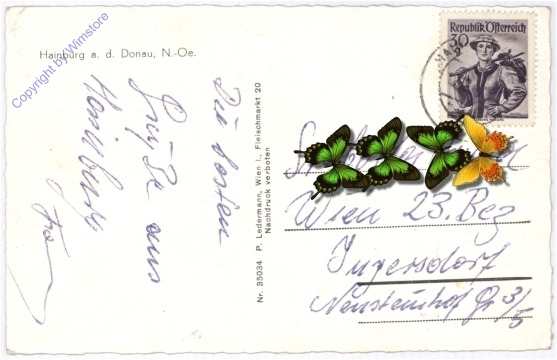 Copyright by Wimstore
Hainburg a. d. Donau, N.-Oe.
Die besten
Grüße aus
Hainburg
Nr. 35034 P. Ledermann, Wien I., Fleischmarkt 20
Nachdruck verboten
Republik Österreich
30
Wien 23. Bez
Inzersdorf
3/5